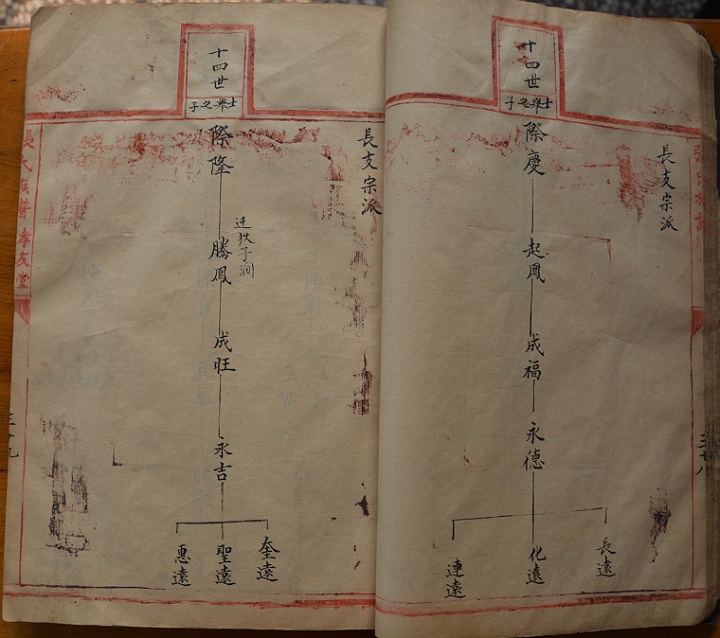 十四世
士舉之子
長支宗派
際慶
起鳳
成福
永德
長遠
化遠
連遠
十四世
士舉之子
長支宗派
際隆
迁扒子涧
騰鳳
成旺
永吉
奎遠
聖遠
惠遠